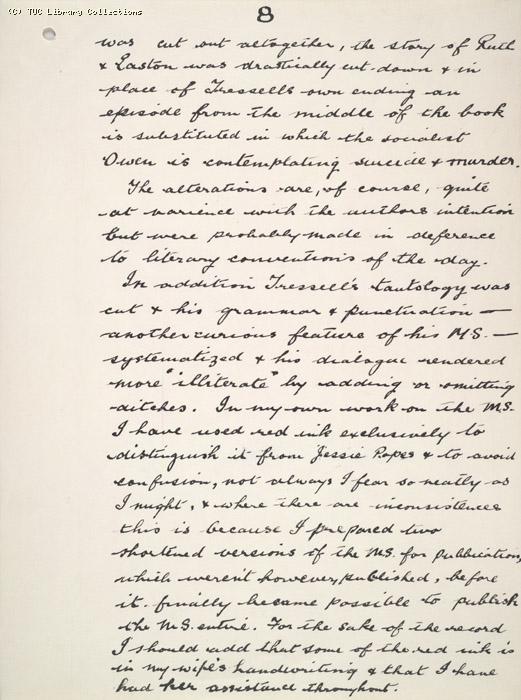 (C) TUC Library Collections
8
was cut out altogether, the story of Ruth
& Easton was drastically cut down & in
place of Tressell's own ending an
episode from the middle of the book
is substituted in which the socialist
Owen is contemplating suicide & murder.
The alterations are, of course, quite
at varience with the authors intention
but were probably made in deference
to literary conventions of the day.
In addition Tressell's tautology was
cut & his grammar & punctuation —
another curious feature of his M.S. —
systematized & his dialogue rendered
more "illiterate" by adding or omitting
aitches. In my own work on the M.S.
I have used red ink exclusively to
distinguish it from Jessie Popes & to avoid
confusion, not always I fear so neatly as
I might, & where there are inconsistences
this is because I prepared two
shortened versions of the M.S. for publication,
which weren't however, published, before
it finally became possible to publish
the M.S. entire. For the sake of the record
I should add that some of the red ink is
in my wife's handwriting & that I have
had her assistance throughout.